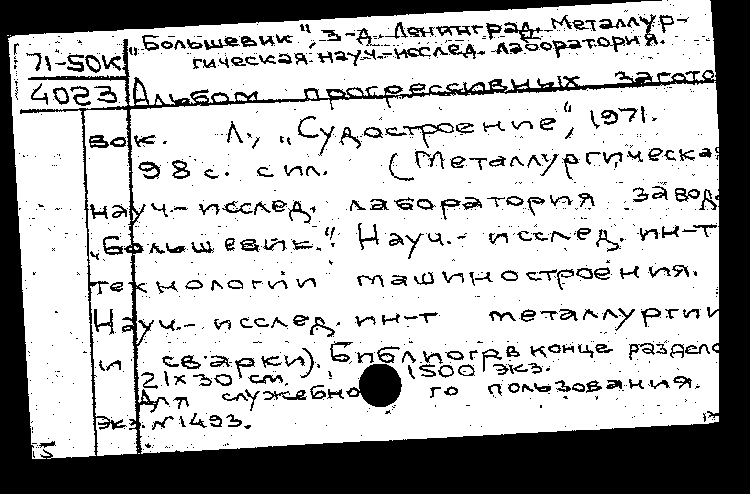 „Большевик", з-д. Ленинград. Металлур-
гическая науч.-исслед. лаборатория.
71-50К
4023 Альбом прогрессивных загото
вок. Л., „Судостроение", 1971.
98 с. с ил. (Металлургическая
науч.-исслед. лаборатория завод.
„Большевик." Науч.- исслед. ин-т
технологии машиностроения.
Науч.- исслед. ин-т металлургии
и сварки). Библиогр. в конце раздело
21х30 см. 1500 экз.
Для служебно го пользования.
Экз. № 1493.